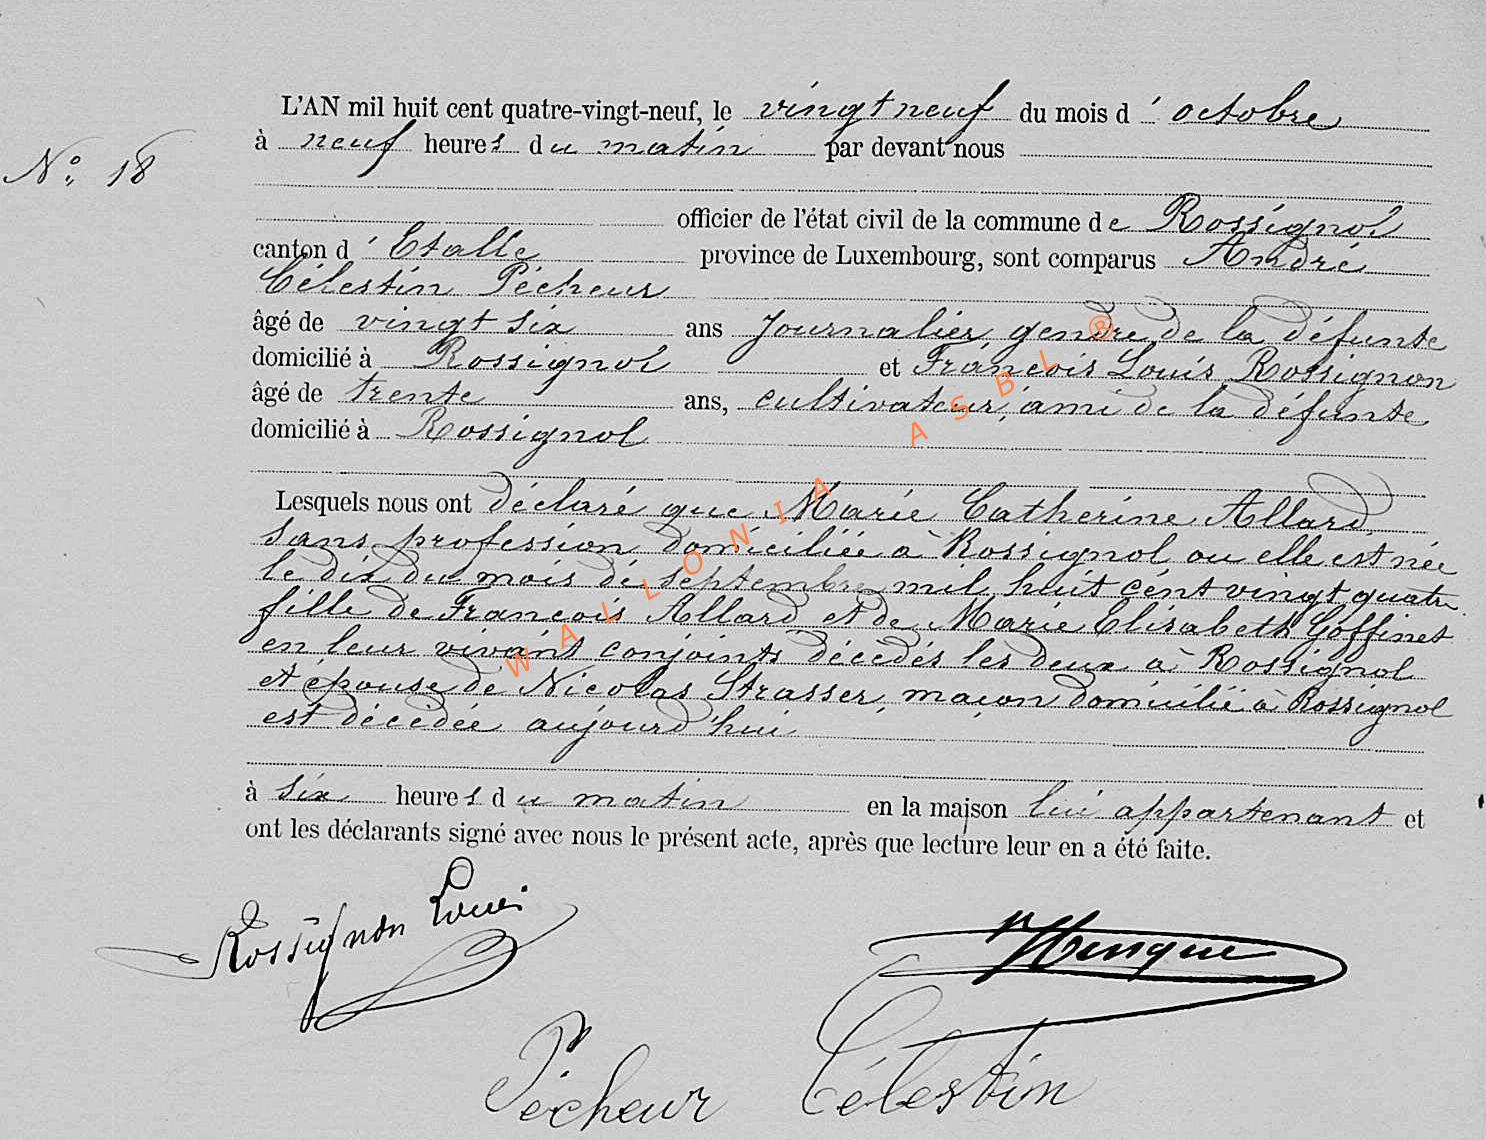 L'AN mil huit cent quatre-vingt-neuf, le vingt neuf du mois d' octobre
à neuf heures du matin par devant nous
N° 18
officier de l'état civil de la commune de Rossignol
canton d' Etalle province de Luxembourg, sont comparus André
Célestin Pécheur
âgé de vingt six ans Journalier, gendre de la défunte
domicilié à Rossignol et François Louis Rossignon
âgé de trente ans, cultivateur, ami de la défunte
domicilié à Rossignol
Lesquels nous ont déclaré que Marie Catherine Allard,
sans profession domiciliée à Rossignol ou elle est née
le dix du mois de septembre mil huit cent vingt quatre
fille de François Allard et de Marie Elisabeth Goffinet
en leur vivant conjoints décédés les deux à Rossignol
et épouse de Nicolas Strasser, maçon domicilié à Rossignol
est décédée aujourd'hui
à six heures du matin en la maison lui appartenant et
ont les déclarants signé avec nous le présent acte, après que lecture leur en a été faite.
Rossignon Louis
Hinque
Pécheur Célestin
WALLONIA ASBL ®